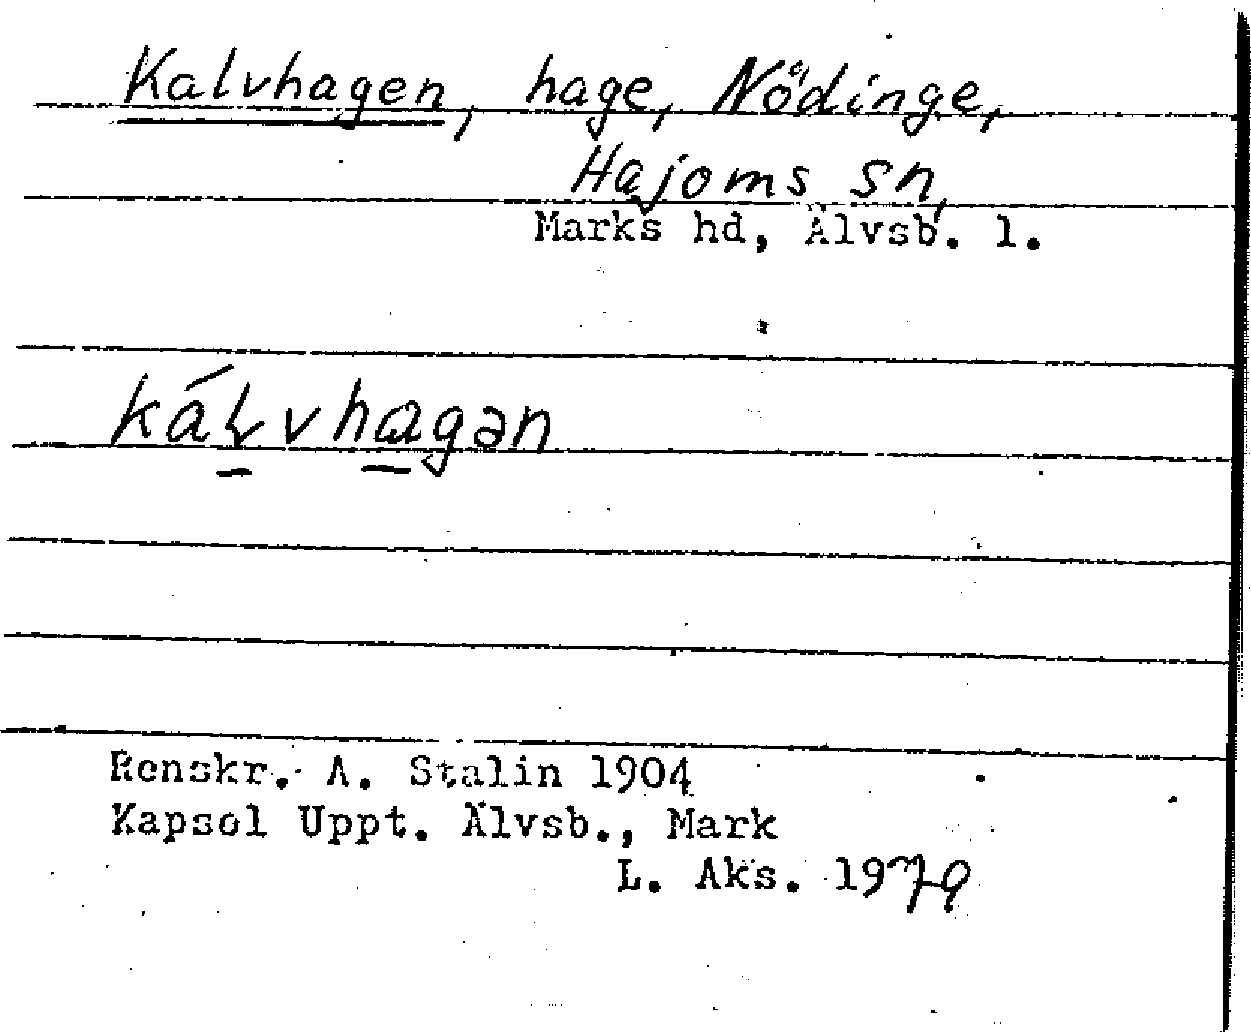 Kalvhagen, hage, Nödinge,
Hajoms sn,
Marks hd, Älvsb. l.
kálvhagən
Renskr. A. Stalin 1904
Kapsel Uppt. Älvsb., Mark
L. Aks. 1979